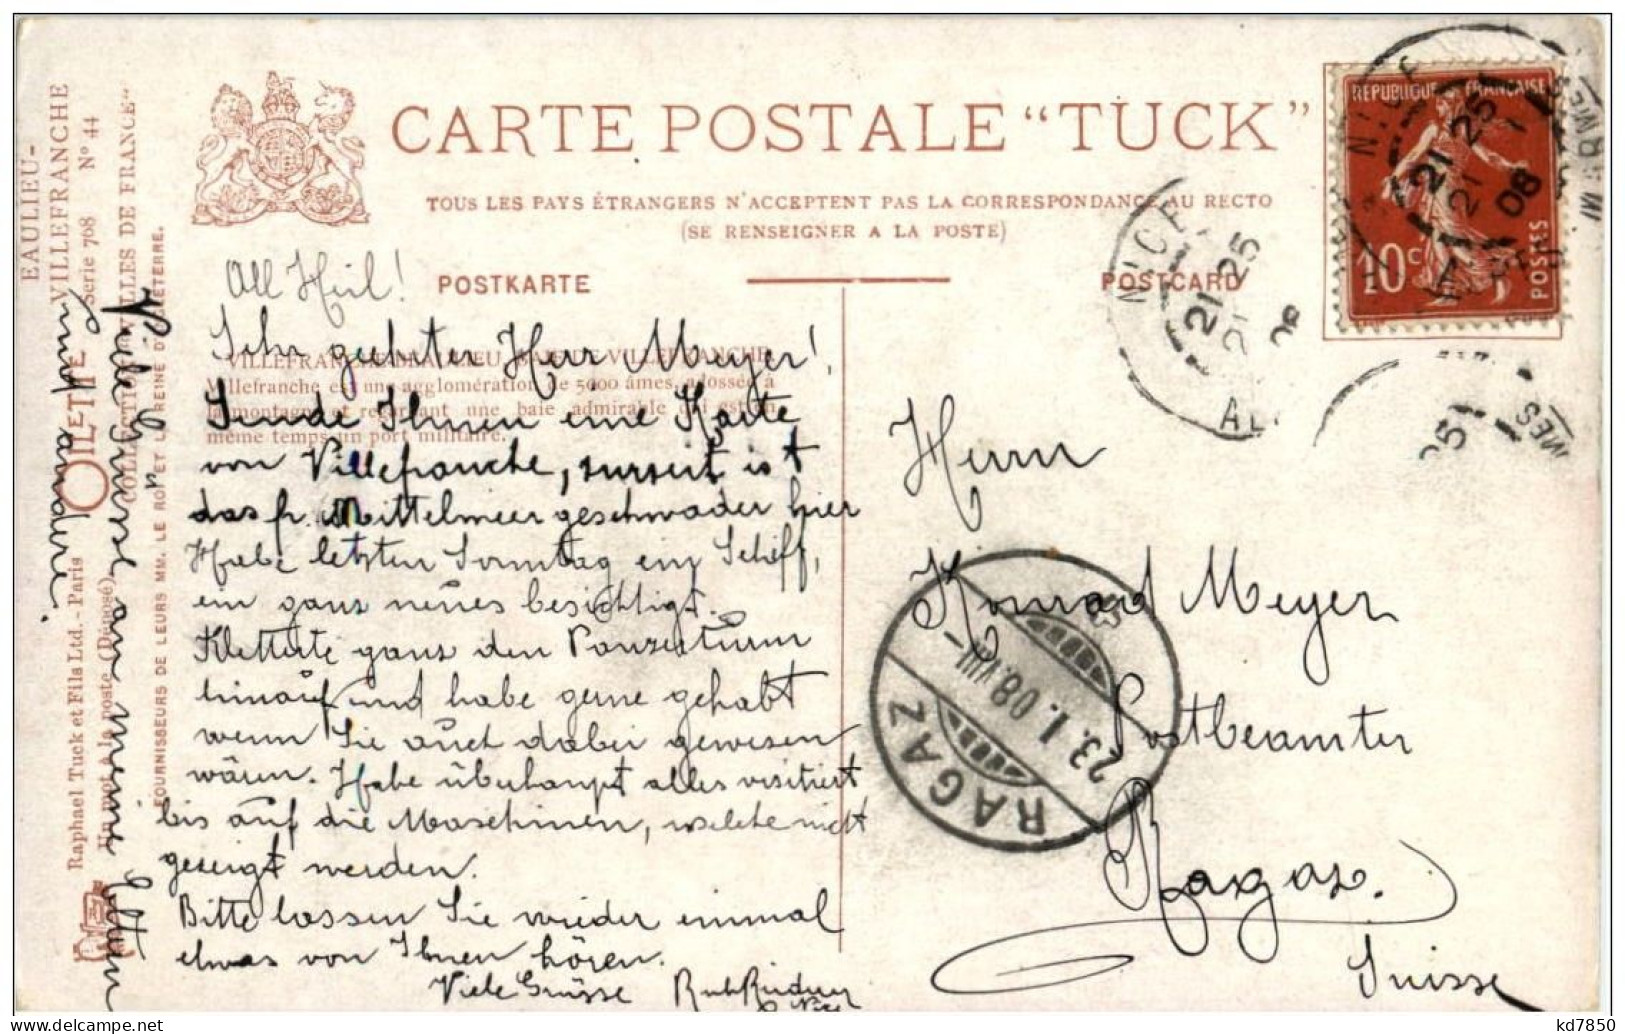 CARTE POSTALE "TUCK"
TOUS LES PAYS ÉTRANGERS N'ACCEPTENT PAS LA CORRESPONDANCE AU RECTO
(SE RENSEIGNER A LA POSTE)
POSTKARTE
POSTCARD
REPUBLIQUE FRANÇAISE
10 c
POSTES
NICE
21 25
21 1
08
NICE
21 25
21
08
AL
25
MES
All Heil!
VILLEFRANCHE-BEAULIEU. BAIE DE VILLEFRANCHE
Villefranche est une agglomération de 5000 âmes, adossée à
la montagne et regardant une baie admirable qui est en
même temps un port militaire.
Sehr geehrter Herr Meyer!
Sende Ihnen eine Karte
von Villefranche, zurzeit ist
das fr. Mittelmeergeschwader hier
Habe letzten Sonntag ein Schiff,
ein ganz neues besichtigt.
Kletterte ganz den Panzerturm
hinauf und habe gerne gehabt
wenn Sie auch dabei gewesen
wären. Habe überhaupt alles visitiert
bis auf die Maschinen, welche nicht
gezeigt werden.
Bitte lassen Sie wieder einmal
etwas von Ihnen hören.
Viele Grüsse
Nice
Viele Grüsse an meine Eltern
und andere.
Herrn
Konrad Meyer
Postbeamter
Ragaz.
Suisse
RAGAZ
23.I.08.VIII-
EAULIEU-
VILLEFRANCHE
Serie 708 N° 44
COLLECTION "VILLES DE FRANCE"
OILETTE
Raphael Tuck et Fils Ltd. - Paris
Un mot à la poste (Déposé)
FOURNISSEURS DE LEURS MM. LE ROI ET LA REINE D'ANGLETERRE.
kd7850